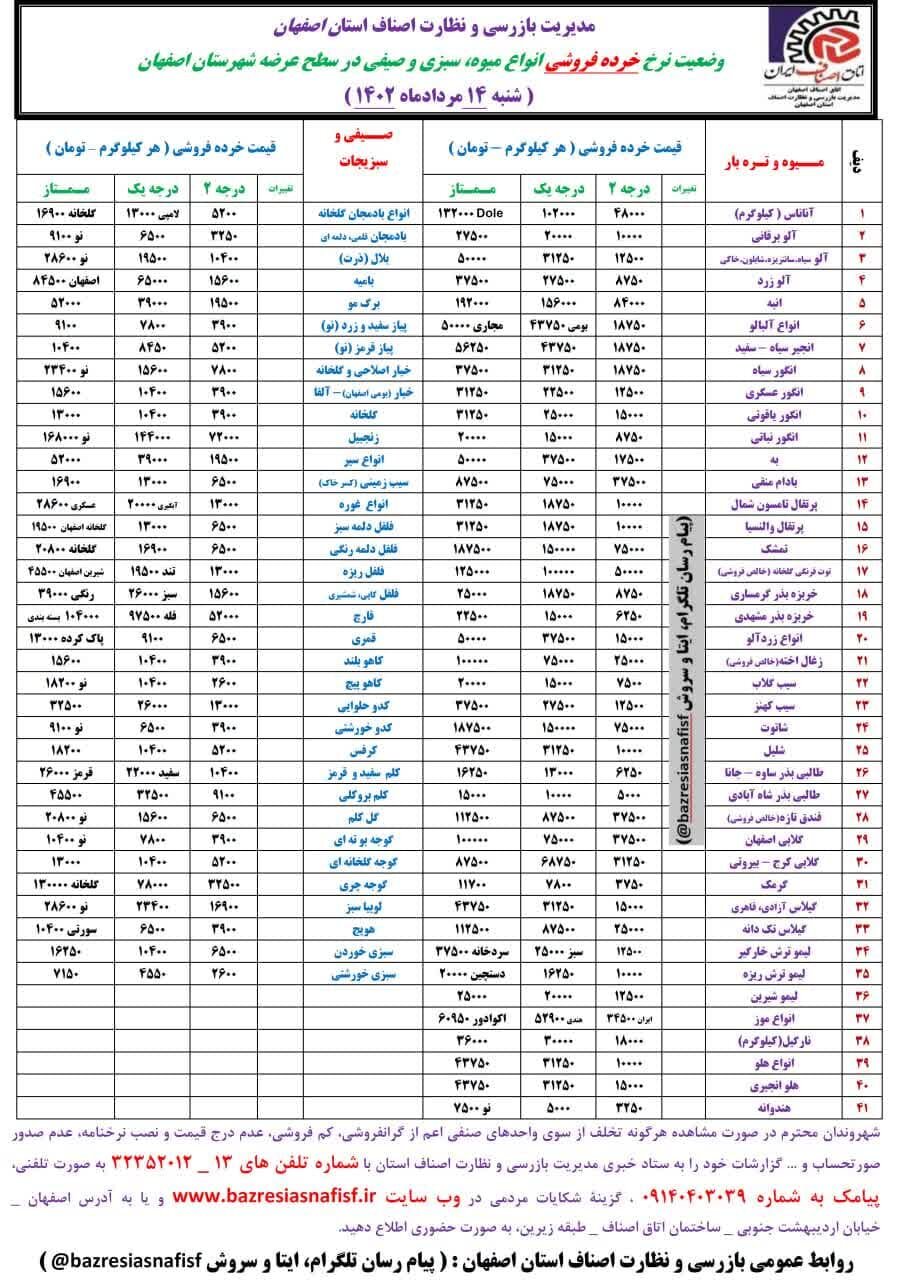 مدیریت بازرسی و نظارت اصناف استان اصفهان
وضعیت نرخ خرده فروشی انواع میوه، سبزی و صیفی در سطح عرضه شهرستان اصفهان
( شنبه ۱۴ مردادماه ۱۴۰۲ )
اتاق اصناف ایران
اتاق اصناف اصفهان
مدیریت بازرسی و نظارت اصناف
استان اصفهان
ردیف میوه و تره بار قیمت خرده فروشی ( هر کیلوگرم – تومان ) صیفی و سبزیجات قیمت خرده فروشی ( هر کیلوگرم – تومان )
تغییرات درجه ۲ درجه یک ممتاز تغییرات درجه ۲ درجه یک ممتاز
۱ آناناس ( کیلوگرم) ۴۸۰۰۰ ۱۰۲۰۰۰ Dole ۱۳۲۰۰۰ انواع بادمجان گلخانه ۵۲۰۰ لامپی ۱۳۰۰۰ گلخانه ۱۶۹۰۰
۲ آلو برقانی ۱۰۰۰۰ ۲۰۰۰۰ ۲۷۵۰۰ بادمجان قلمی، دلمه ای ۳۲۵۰ ۶۵۰۰ نو ۹۱۰۰
۳ آلو سیاه، سانتریزه، شابلون، خاکی ۱۲۵۰۰ ۳۱۲۵۰ ۵۰۰۰۰ بلال (ذرت) ۱۰۴۰۰ ۱۹۵۰۰ نو ۲۸۶۰۰
۴ آلو زرد ۸۷۵۰ ۲۷۵۰۰ ۳۷۵۰۰ بامیه ۱۵۶۰۰ ۶۵۰۰۰ اصفهان ۸۴۵۰۰
۵ انبه ۸۴۰۰۰ ۱۵۶۰۰۰ ۱۹۲۰۰۰ برگ مو ۱۹۵۰۰ ۳۹۰۰۰ ۵۲۰۰۰
۶ انواع آلبالو ۱۸۷۵۰ بومی ۴۳۷۵۰ مجاری ۵۰۰۰۰ پیاز سفید و زرد (نو) ۳۹۰۰ ۷۸۰۰ ۹۱۰۰
۷ انجیر سیاه – سفید ۱۸۷۵۰ ۴۳۷۵۰ ۵۶۲۵۰ پیاز قرمز (نو) ۵۲۰۰ ۸۴۵۰ ۱۰۴۰۰
۸ انگور سیاه ۱۸۷۵۰ ۳۱۲۵۰ ۳۷۵۰۰ خیار اصلاحی و گلخانه ۷۸۰۰ ۱۵۶۰۰ نو ۲۳۴۰۰
۹ انگور عسکری ۱۲۵۰۰ ۲۲۵۰۰ ۳۱۲۵۰ خیار (بومی اصفهان) – آلفا ۳۹۰۰ ۱۰۴۰۰ ۱۵۶۰۰
۱۰ انگور یاقوتی ۱۵۰۰۰ ۲۵۰۰۰ ۳۱۲۵۰ گلخانه ۳۹۰۰ ۱۰۴۰۰ ۱۳۰۰۰
۱۱ انگور نباتی ۸۷۵۰ ۱۵۰۰۰ ۲۰۰۰۰ زنجبیل ۷۲۰۰۰ ۱۴۴۰۰۰ نو ۱۶۸۰۰۰
۱۲ به ۱۷۵۰۰ ۳۷۵۰۰ ۵۰۰۰۰ انواع سیر ۱۹۵۰۰ ۳۹۰۰۰ ۵۲۰۰۰
۱۳ بادام منقی ۳۷۵۰۰ ۷۵۰۰۰ ۸۷۵۰۰ سیب زمینی (کسر خاک) ۶۵۰۰ ۱۳۰۰۰ ۱۶۹۰۰
۱۴ پرتقال تامسون شمال ۱۰۰۰۰ ۱۸۷۵۰ ۳۱۲۵۰ انواع غوره ۱۳۰۰۰ آبگیری ۲۰۰۰۰ عسکری ۲۸۶۰۰
۱۵ پرتقال والنسیا ۱۰۰۰۰ ۱۸۷۵۰ ۳۱۲۵۰ فلفل دلمه سبز ۶۵۰۰ ۱۳۰۰۰ گلخانه اصفهان ۱۹۵۰۰
۱۶ تمشک ۷۵۰۰۰ ۱۵۰۰۰۰ ۱۸۷۵۰۰ فلفل دلمه رنگی ۶۵۰۰ ۱۶۹۰۰ گلخانه ۲۰۸۰۰
۱۷ توت فرنگی گلخانه (خالص فروشی) ۵۰۰۰۰ ۱۰۰۰۰۰ ۱۲۵۰۰۰ فلفل ریزه ۱۳۰۰۰ تند ۱۹۵۰۰ شیرین اصفهان ۴۵۵۰۰
۱۸ خربزه بذر گرمساری ۸۷۵۰ ۱۸۷۵۰ ۲۵۰۰۰ فلفل کاپی، شمشیری ۱۵۶۰۰ سبز ۲۶۰۰۰ رنگی ۳۹۰۰۰
۱۹ خربزه بذر مشهدی ۶۲۵۰ ۱۵۰۰۰ ۲۲۵۰۰ قارچ ۵۲۰۰۰ فله ۹۷۵۰۰ ۱۰۴۰۰۰ بسته بندی
۲۰ انواع زردآلو ۱۵۰۰۰ ۳۷۵۰۰ ۵۰۰۰۰ قمری ۶۵۰۰ ۹۱۰۰ پاک کرده ۱۳۰۰۰
۲۱ زغال اخته(خالص فروشی) ۲۵۰۰۰ ۷۵۰۰۰ ۱۰۰۰۰۰ کاهو بلند ۳۹۰۰ ۱۰۴۰۰ ۱۵۶۰۰
۲۲ سیب گلاب ۷۵۰۰ ۱۵۰۰۰ ۲۰۰۰۰ کاهو پیچ ۲۶۰۰ ۱۰۴۰۰ نو ۱۸۲۰۰
۲۳ سیب کهنز ۱۲۵۰۰ ۲۷۵۰۰ ۳۷۵۰۰ کدو حلوایی ۱۳۰۰۰ ۲۶۰۰۰ ۳۲۵۰۰
۲۴ شاتوت ۷۵۰۰۰ ۱۵۰۰۰۰ ۱۸۷۵۰۰ کدو خورشتی ۳۹۰۰ ۶۵۰۰ نو ۹۱۰۰
۲۵ شلیل ۱۰۰۰۰ ۳۱۲۵۰ ۴۳۷۵۰ کرفس ۵۲۰۰ ۱۰۴۰۰ ۱۸۲۰۰
۲۶ طالبی بذر ساوه – جانا ۶۲۵۰ ۱۳۰۰۰ ۱۶۲۵۰ کلم سفید و قرمز ۱۰۴۰۰ سفید ۲۲۰۰۰ قرمز ۲۶۰۰۰
۲۷ طالبی بذر شاه آبادی ۵۰۰۰ ۱۰۰۰۰ ۱۵۰۰۰ کلم بروکلی ۹۱۰۰ ۳۲۵۰۰ ۴۵۵۰۰
۲۸ فندق تازه(خالص فروشی) ۳۷۵۰۰ ۸۷۵۰۰ ۱۱۲۵۰۰ گل کلم ۶۵۰۰ ۱۵۶۰۰ نو ۲۰۸۰۰
۲۹ گلابی اصفهان ۳۷۵۰۰ ۷۵۰۰۰ ۱۰۰۰۰۰ گوجه بوته ای ۳۹۰۰ ۷۸۰۰ نو ۱۰۴۰۰
۳۰ گلابی کرج – بیروتی ۳۱۲۵۰ ۶۸۷۵۰ ۸۷۵۰۰ گوجه گلخانه ای ۵۲۰۰ ۱۰۴۰۰ ۱۳۰۰۰
۳۱ گرمک ۳۷۵۰ ۷۸۰۰ ۱۱۷۰۰ گوجه چری ۳۲۵۰۰ ۷۸۰۰۰ گلخانه ۱۳۰۰۰۰
۳۲ گیلاس آزادی، قاهری ۱۵۰۰۰ ۳۱۲۵۰ ۴۳۷۵۰ لوبیا سبز ۱۶۹۰۰ ۲۳۴۰۰ نو ۲۸۶۰۰
۳۳ گیلاس تک دانه ۲۵۰۰۰ ۸۷۵۰۰ ۱۱۲۵۰۰ هویج ۳۹۰۰ ۶۵۰۰ سورتی ۱۰۴۰۰
۳۴ لیمو ترش خارگیر ۱۲۵۰۰ سبز ۲۵۰۰۰ سردخانه ۳۷۵۰۰ سبزی خوردن ۶۵۰۰ ۱۰۴۰۰ ۱۶۲۵۰
۳۵ لیمو ترش ریزه ۱۰۰۰۰ ۱۶۲۵۰ دستچین ۲۰۰۰۰ سبزی خورشتی ۲۶۰۰ ۴۵۵۰ ۷۱۵۰
۳۶ لیمو شیرین ۱۲۵۰۰ ۲۰۰۰۰ ۲۵۰۰۰
۳۷ انواع موز ایران ۳۴۵۰۰ هندی ۵۲۹۰۰ اکوادور ۶۰۹۵۰
۳۸ نارگیل(کیلوگرم) ۱۸۰۰۰ ۳۰۰۰۰ ۳۶۰۰۰
۳۹ انواع هلو ۱۰۰۰۰ ۳۱۲۵۰ ۴۳۷۵۰
۴۰ هلو انجیری ۱۵۰۰۰ ۳۱۲۵۰ ۴۳۷۵۰
۴۱ هندوانه ۳۲۵۰ ۵۰۰۰ نو ۷۵۰۰
(پیام رسان تلگرام، ایتا و سروش bazresiasnafisf@)
شهروندان محترم در صورت مشاهده هرگونه تخلف از سوی واحدهای صنفی اعم از گرانفروشی، کم فروشی، عدم درج قیمت و نصب نرخنامه، عدم صدور
صورتحساب و ... گزارشات خود را به ستاد خبری مدیریت بازرسی و نظارت اصناف استان با شماره تلفن های ۱۳ _ ۳۲۳۵۲۰۱۲ به صورت تلفنی،
پیامک به شماره ۰۹۱۴۰۴۰۳۰۳۹ ، گزینهٔ شکایات مردمی در وب سایت www.bazresiasnafisf.ir و یا به آدرس اصفهان _
خیابان اردیبهشت جنوبی _ ساختمان اتاق اصناف _ طبقه زیرین، به صورت حضوری اطلاع دهید.
روابط عمومی بازرسی و نظارت اصناف استان اصفهان : ( پیام رسان تلگرام، ایتا و سروش bazresiasnafisf@ )